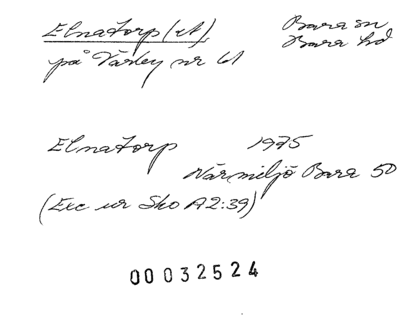 Elnatorp (rA) Bara sn
på Värley nr 61 Bara hd
Elnatorp 1975
Närmiljö Bara 50
(Exc ur Sko A2:39)
00032524